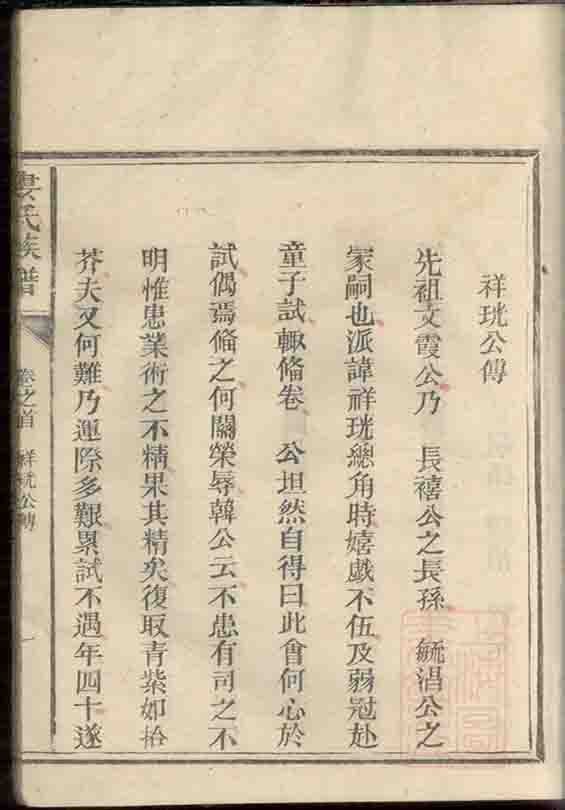 祥珖公傳
先祖文霞公乃　長禧公之長孫　毓淐公之
冢嗣也派諱祥珖總角時嬉戲不伍及弱冠赴
童子試輙偹卷　公坦然自得曰此會何心於
試偶焉偹之何關榮辱韓公云不患有司之不
明惟患業術之不精果其精矣復取青紫如拾
芥夫又何難乃運際多艱累試不遇年四十遂
婁氏族譜
卷之首
祥珖公傳
一